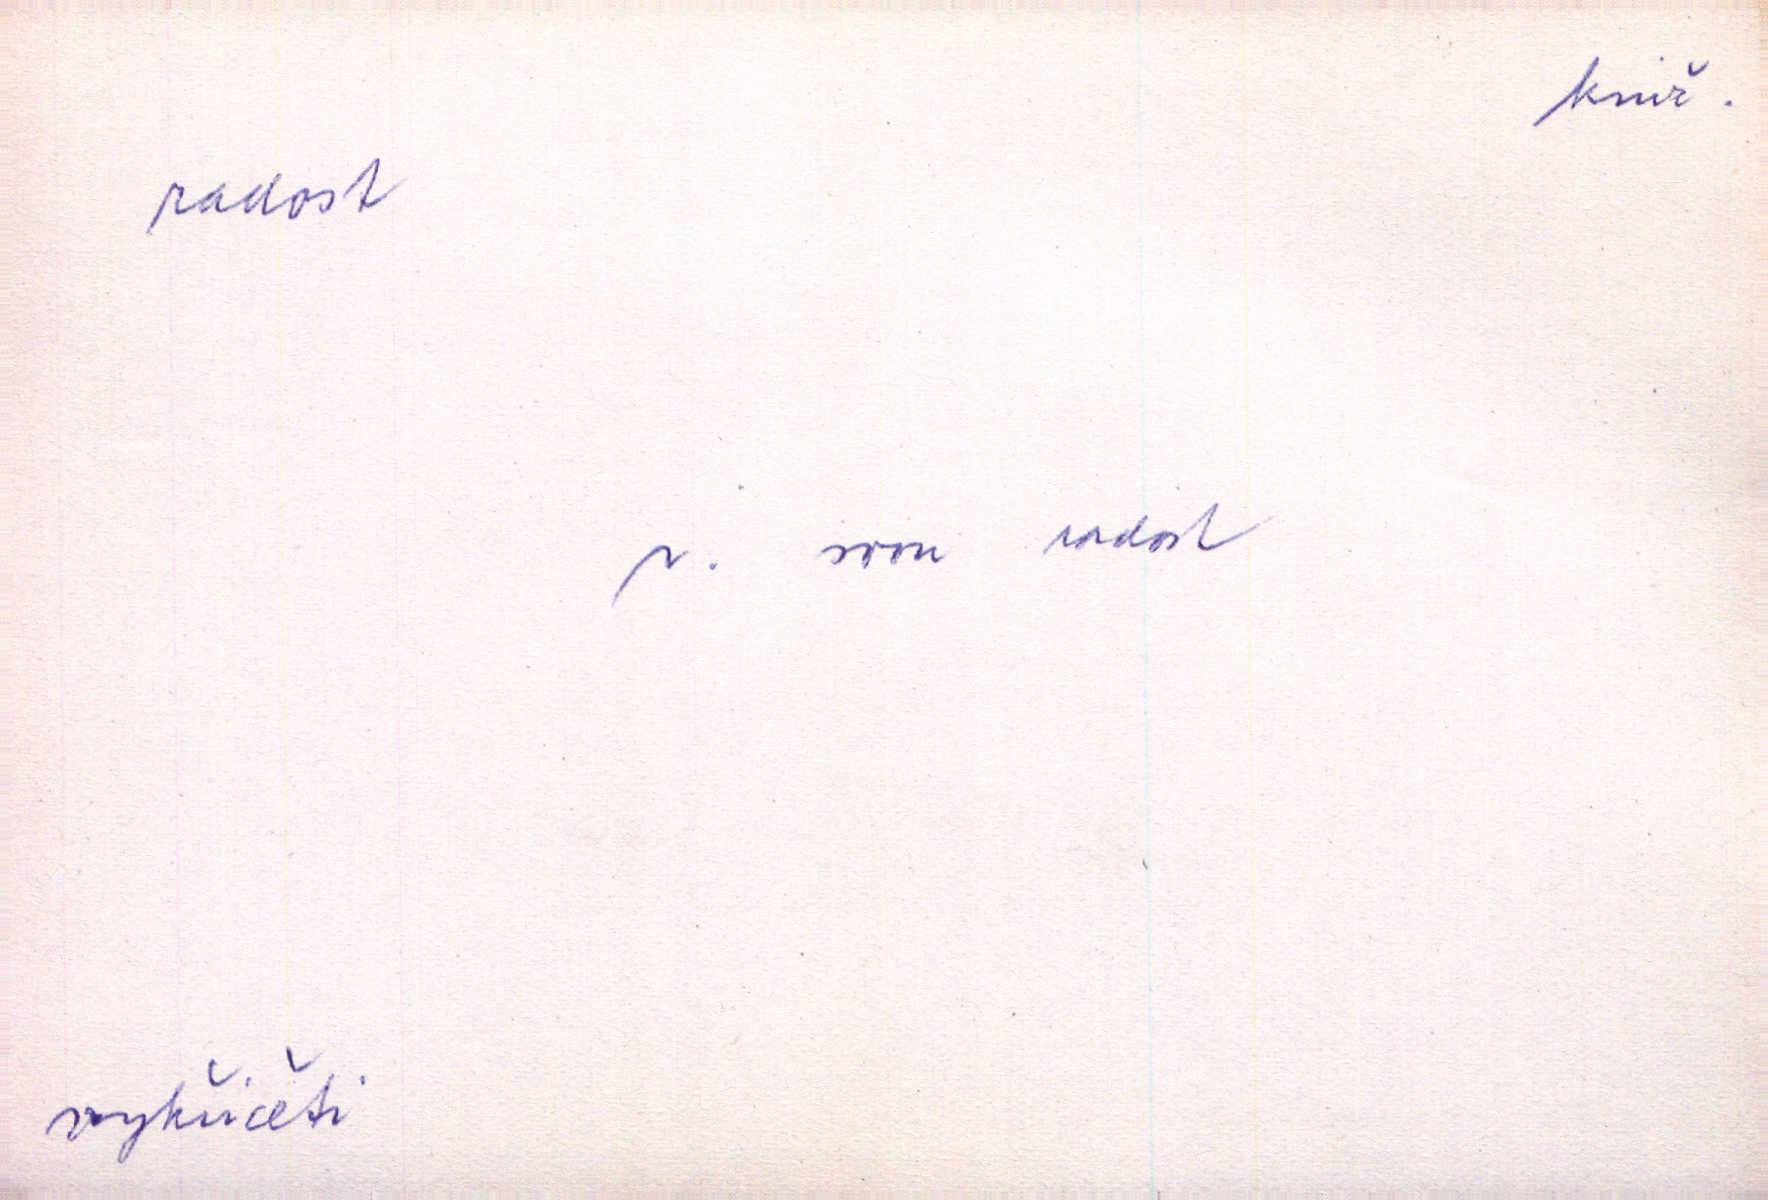 kniž.
radost
v. svou radost
vykřičeti